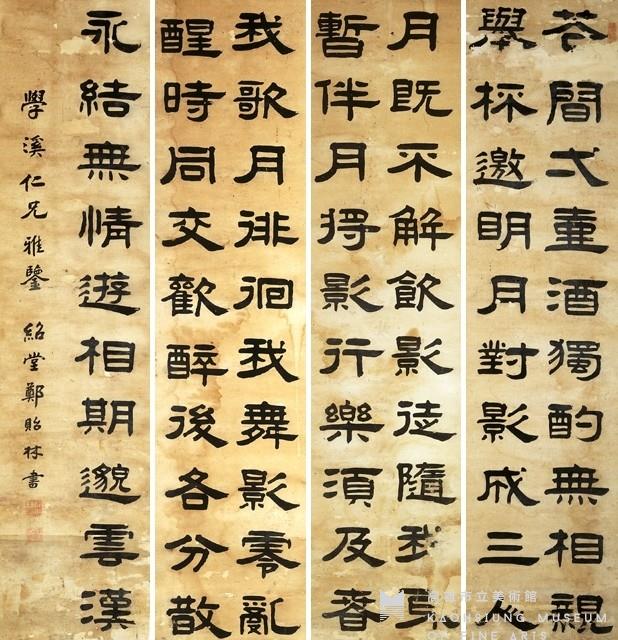 花間弌壺酒獨酌無相親
舉杯邀明月對影成三人
月既不解飲影徒隨我身
暫伴月將影行樂須及春
我歌月徘徊我舞影零亂
醒時同交歡醉後各分散
永結無情遊相期邈雲漢
學溪仁兄雅鑒 紹堂鄭貽林書
高雄市立美術館
KAOHSIUNG MUSEUM
OF FINE ARTS